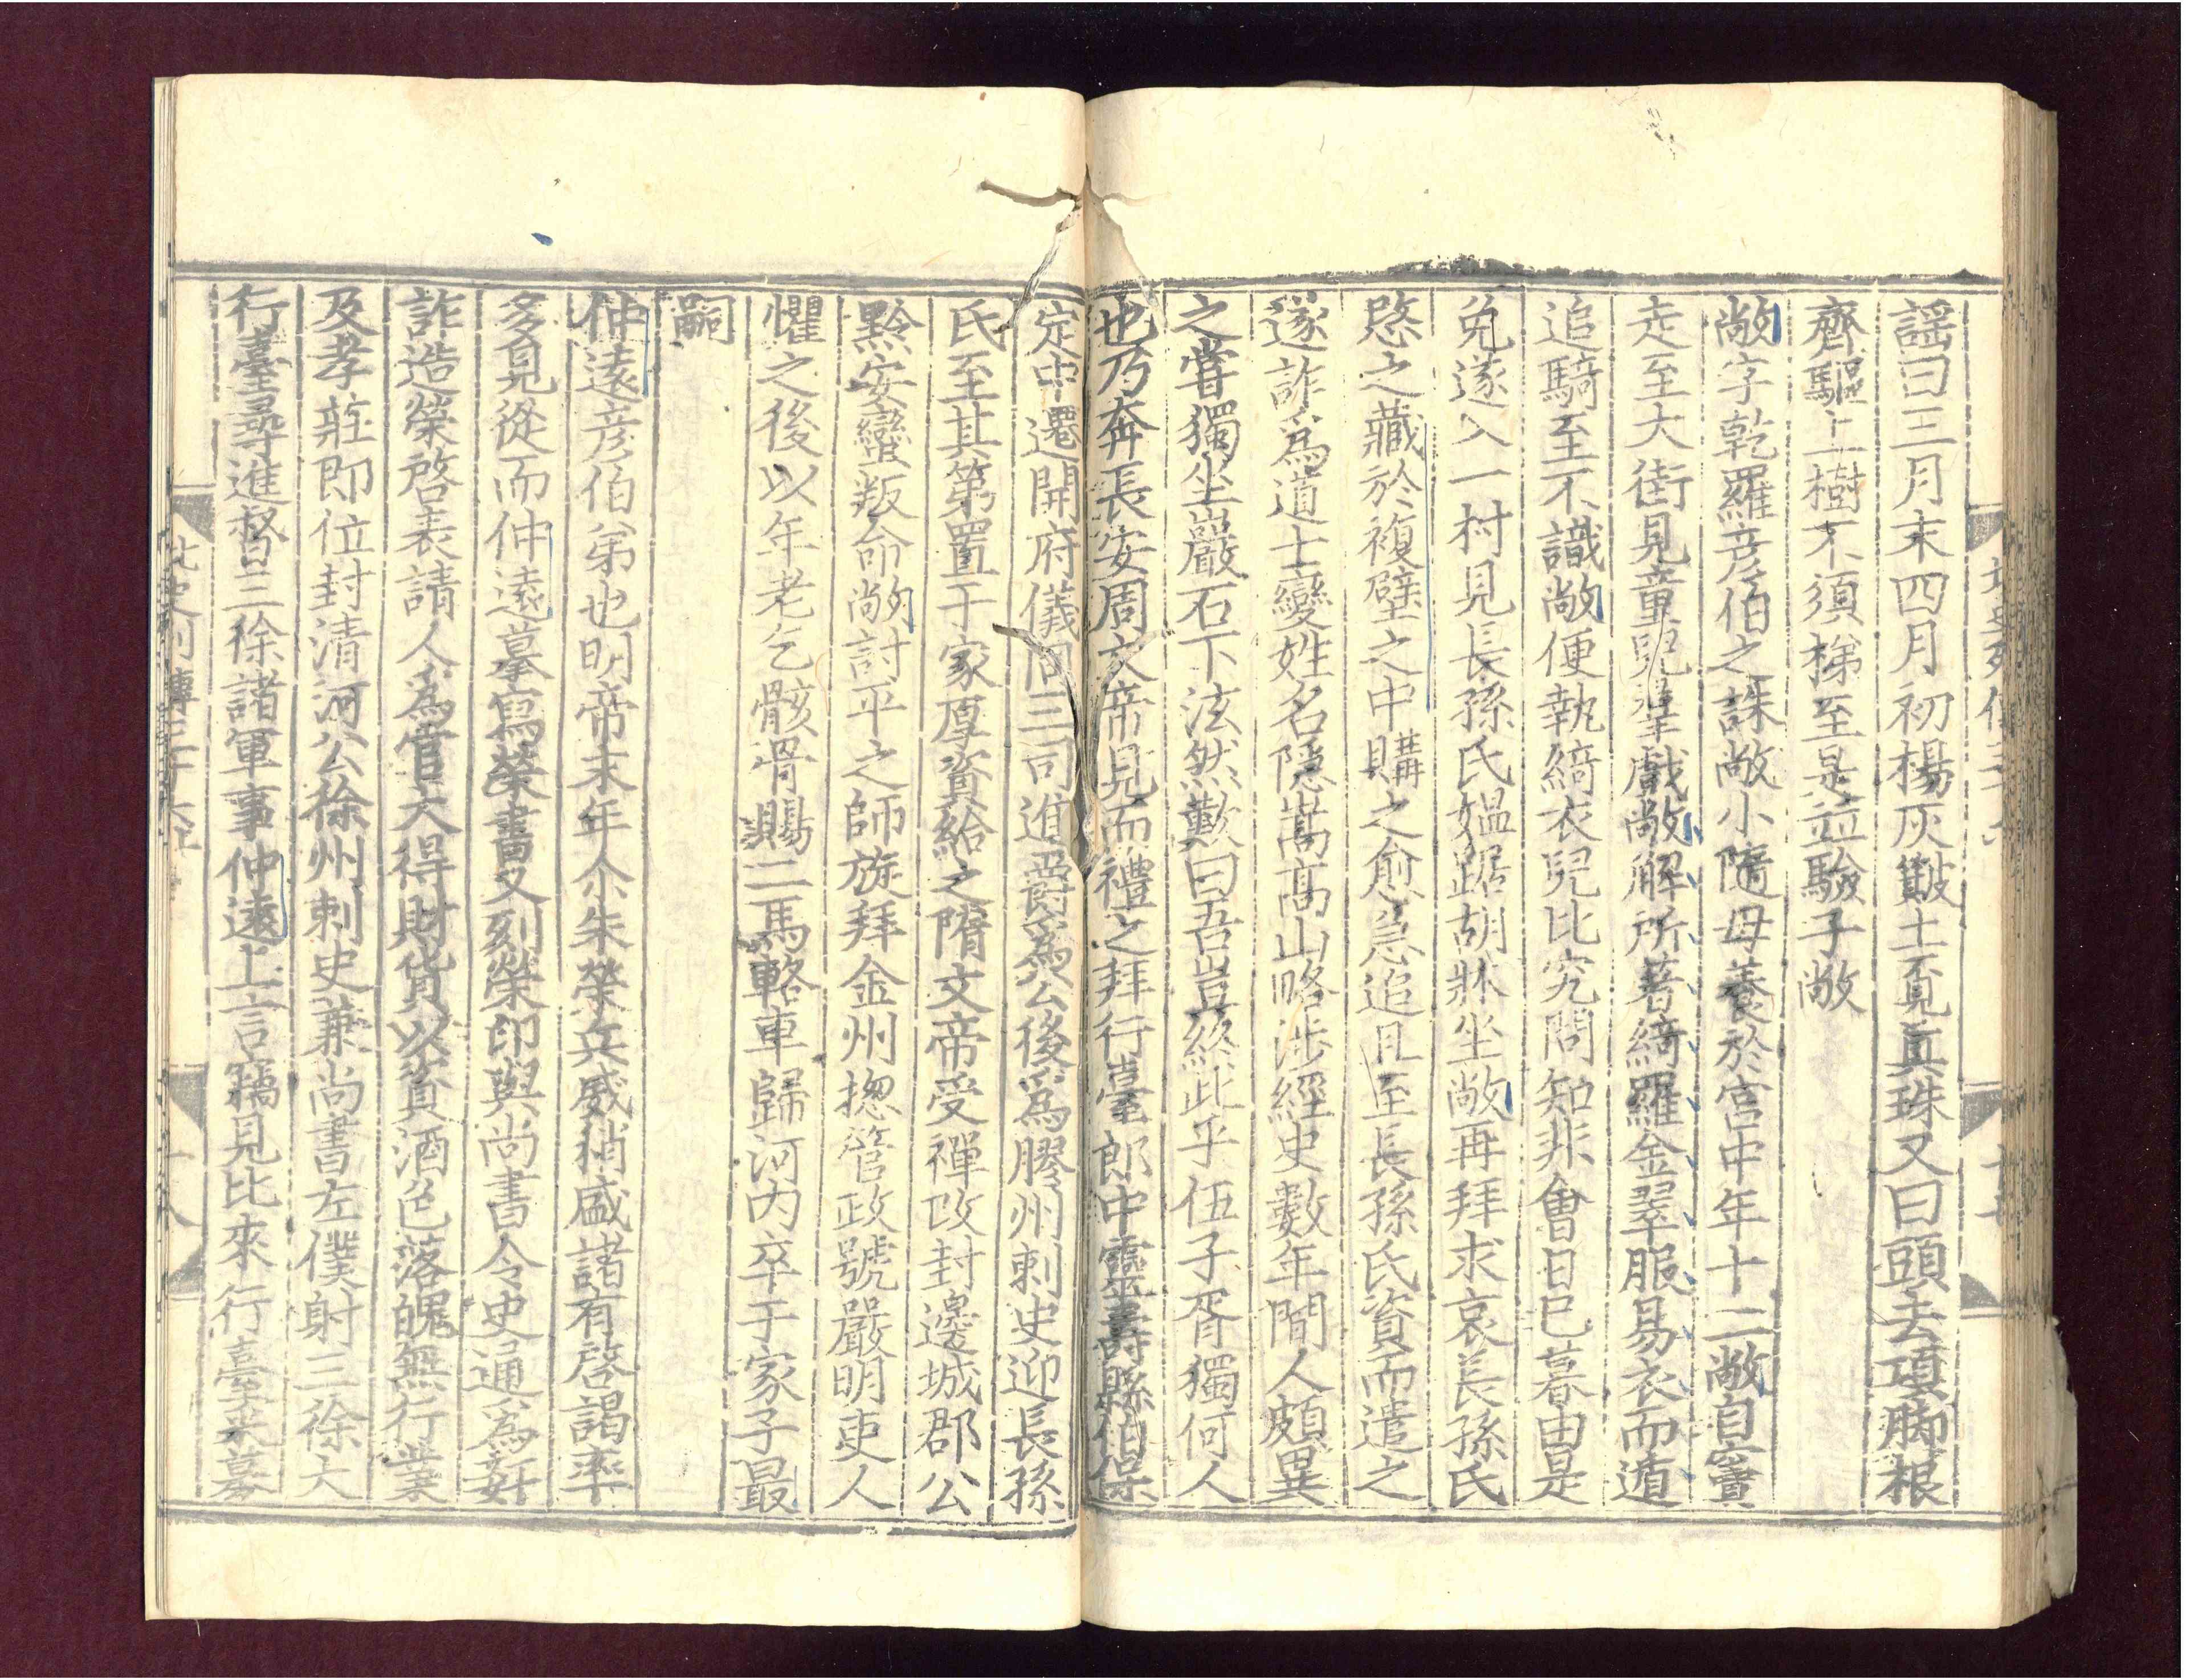 謡曰三月末四月初楊灰簸土覓真珠又曰頭去項脚根
齊驅上樹不須梯至是並驗子敞
敞字乾羅彥伯之誅敞小隨母養於宮中年十二敞自竇
走至大街見童兒羣戲敞解所著綺羅金翠服易衣而遁
追騎至不識敞便執綺衣兒比究問知非會日巳暮由是
免遂入一村見長孫氏媪踞胡牀坐敞再拜求哀長孫氏
愍之藏於複壁之中購之愈急追且至長孫氏資而遣之
遂詐爲道士變姓名隱嵩高山略涉經史數年間人頗異
之嘗獨坐巖石下泫然歎曰吾豈終此乎伍子胥獨何人
也乃奔長安周文帝見而禮之拜行臺郎中靈壽縣伯保
定中遷開府儀同三司進爵爲公後爲膠州刺史迎長孫
氏至其第置于家厚資給之隋文帝受禪改封邊城郡公
黔安蠻叛命敞討平之師旋拜金州揔管政號嚴明吏人
懼之後以年老乞骸骨賜二馬輅車歸河內卒于家子最
嗣
仲遠彥伯弟也明帝末年尒朱榮兵威稍盛諸有啓謁率
多見從而仲遠摹寫榮書又刻榮印與尚書令史通爲姧
詐造榮啓表請人爲官大得財貨以資酒色落魄無行業
及孝莊即位封清河公徐州刺史兼尚書左僕射三徐大
行臺尋進督三徐諸軍事仲遠上言竊見比來行臺采募
北史列傳三十六
十八